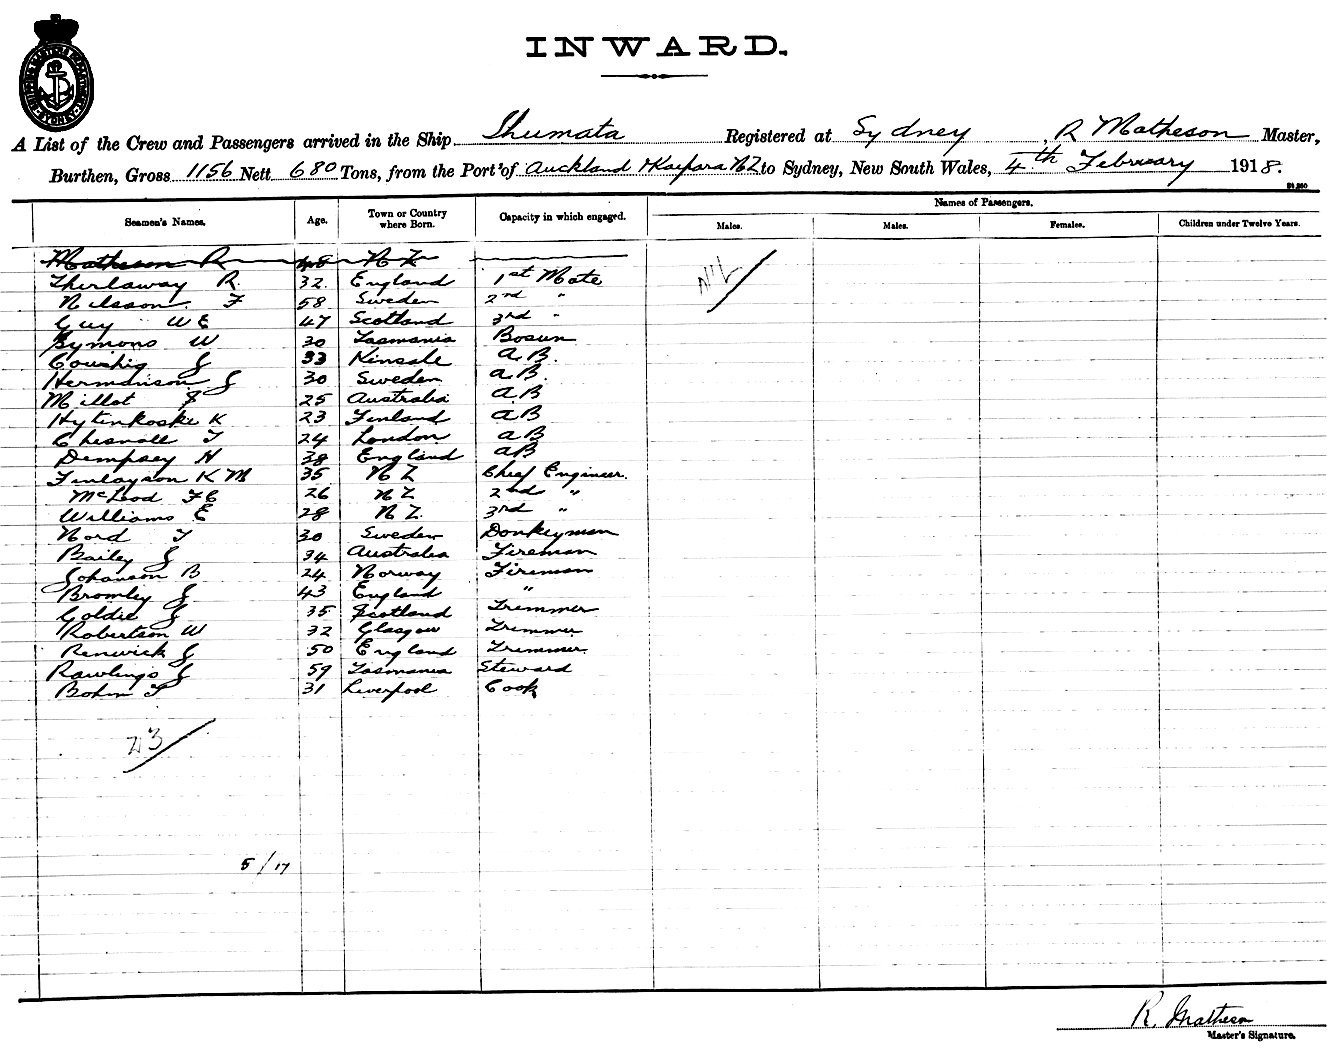 INWARD.
A List of the Crew and Passengers arrived in the Ship Registered at Sydney, R Matheson Master,
Burthen, Gross 1156 Nett 680 Tons, from the Port of Auckland & Kaipara NZ to Sydney, New South Wales, 4th February 1918.
Names of Passengers.
Seamen's Names. Age. Town or Country where Born. Capacity in which engaged. Males. Males. Females. Children under Twelve Years.
Matheson R 48 NZ
Thirlaway R. 32. England 1st Mate Nil
Nilsson F 58 Sweden 2nd "
Guy W E 47 Scotland 3rd "
Symons W 30 Tasmania Bosun
J 33 Kinsale A.B.
J 30 Sweden A.B.
Millot 25 Australia A B
K 23 Finland A B
T 24 London A B
Dempsey H 38 England A B
Finlayson K M 35 N Z Chief Engineer.
McLeod F C 26 N Z 2nd "
Williams E 28 N Z. 3rd "
Nord T 30 Sweden Donkeyman
Bailey J 34 Australia Fireman
Johanson B 24 Norway Fireman
Bromley J 43 England "
Goldie J 35 Scotland Trimmer
Robertson W 32 Glasgow Trimmer
Renwick J 50 England Trimmer
Rawlings J 59 Tasmania Steward
Bohm F 31 Liverpool Cook
23
5/17
R. Matheson
Master's Signature.